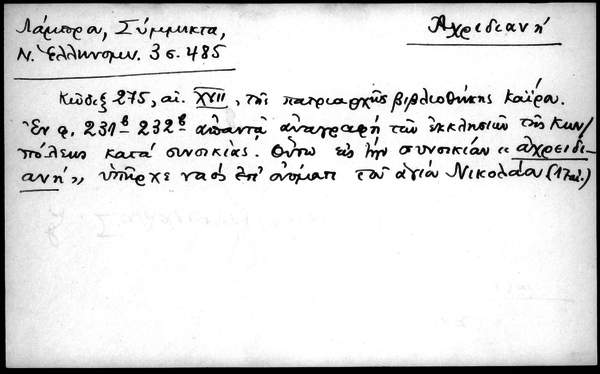 Λάμπρου, Σύμμικτα,
Ν. Ἑλληνομν. 3 σ. 485
Ἀχρειδιανή
Κῶδιξ 275, αἰ. XVII, τῆς πατριαρχικῆς βιβλιοθήκης Καΐρου.
Ἐν φ. 231β 232β ἀπαντᾷ ἀναγραφή τῶν ἐκκλησιῶν τῆς Κων/
πόλεως κατά συνοικίας. Οὕτω εἰς τήν συνοικίαν «ἀχρειδι-
ανή», ὑπῆρχε ναός ἐπ' ὀνόματι τοῦ ἁγίου Νικολάου (17 αἰ.)